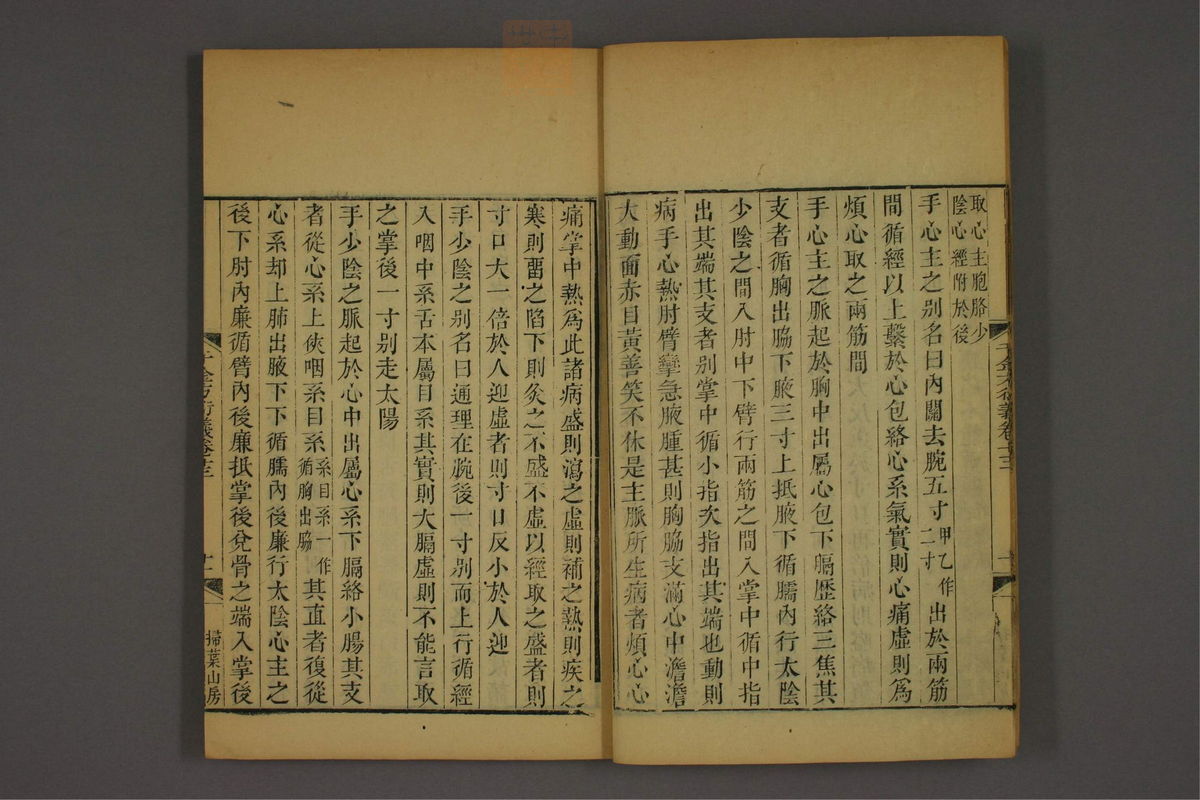 取心主胞胳少
陰心經附於後
手心主之別名曰內關去腕五寸甲乙作二寸出於兩筋
間循經以上繫於心包絡心系氣實則心痛虛則爲
煩心取之兩筋間
手心主之脈起於胸中出屬心包下膈歷絡三焦其
支者循胸出脇下腋三寸上抵腋下循臑內行太陰
少陰之間入肘中下臂行兩筋之間入掌中循中指
出其端其支者別掌中循小指次指出其端也動則
病手心熱肘臂攣急腋腫甚則胸脇支滿心中澹澹
大動面赤目黃善笑不休是主脈所生病者煩心心
痛掌中熱爲此諸病盛則瀉之虛則補之熱則疾之
寒則畱之陷下則灸之不盛不虛以經取之盛者則
寸口大一倍於人迎虛者則寸口反小於人迎
手少陰之別名曰通理在腕後一寸別而上行循經
入咽中系舌本屬目系其實則大膈虛則不能言取
之掌後一寸別走太陽
手少陰之脈起於心中出屬心系下膈絡小腸其支
者從心系上俠咽系目系系目系一作循胸出脇其直者復從
心系却上肺出腋下下循臑內後廉行太陰心主之
後下肘內廉循臂內後廉抵掌後兌骨之端入掌後
千金方衍義卷十三
十一
掃葉山房